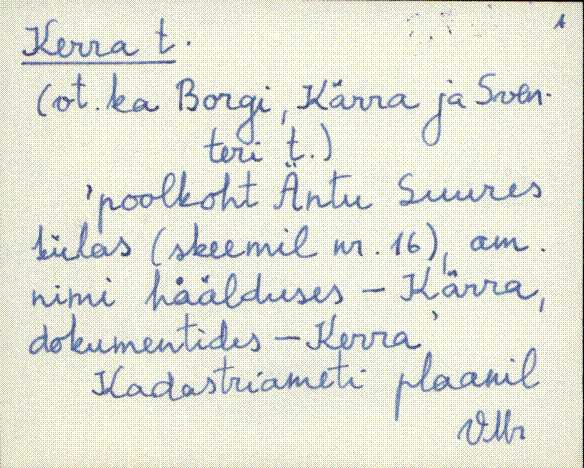 Kerra t.
(ot. ka Borgi, Kärra ja Sven-
teri t.)
'poolkoht Äntu Suures
külas (skeemil nr. 16), am.
nimi häälduses – Kärra,
dokumentides – Kerra'
Kadastriameti plaanil
VMr